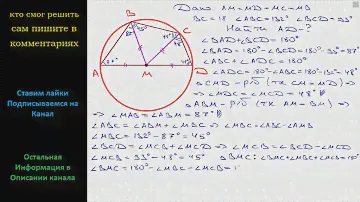 кто смог решить
сам пишите в
комментариях
Ставим лайки
Подписываемся на
Канал
Остальная
Информация в
Описании канала
Дано AM=MD=MC=MB
BC=18 ∠ABC=132° ∠BCD=93°
Найти AD-?
∠BAD+∠BCD=180°
∠BAD=180°-∠BCD=180°-93°=87°
∠ABC+∠ADC=180°
∠ADC=180°-∠ABC=180°-132°=48°
△CMD-р/б (тк CM=MD) ⇒
⇒ ∠MCD=∠MDC=48°
△ABM-р/б (тк AM=BM) ⇒
⇒ ∠MAB=∠ABM=87°
∠ABC=∠ABM+∠MBC ⇒ ∠MBC=∠ABC-∠AMB
∠MBC=132°-87°=45°
∠BCD=∠MCB+∠MCD ⇒ ∠MCB=∠BCD-∠MCD
∠MCB=93°-48°=45° △BMC: ∠BMC+∠MBC+∠MCB=180°
∠BMC=180°-∠MBC-∠MCB=1
A
B
C
D
M
87°